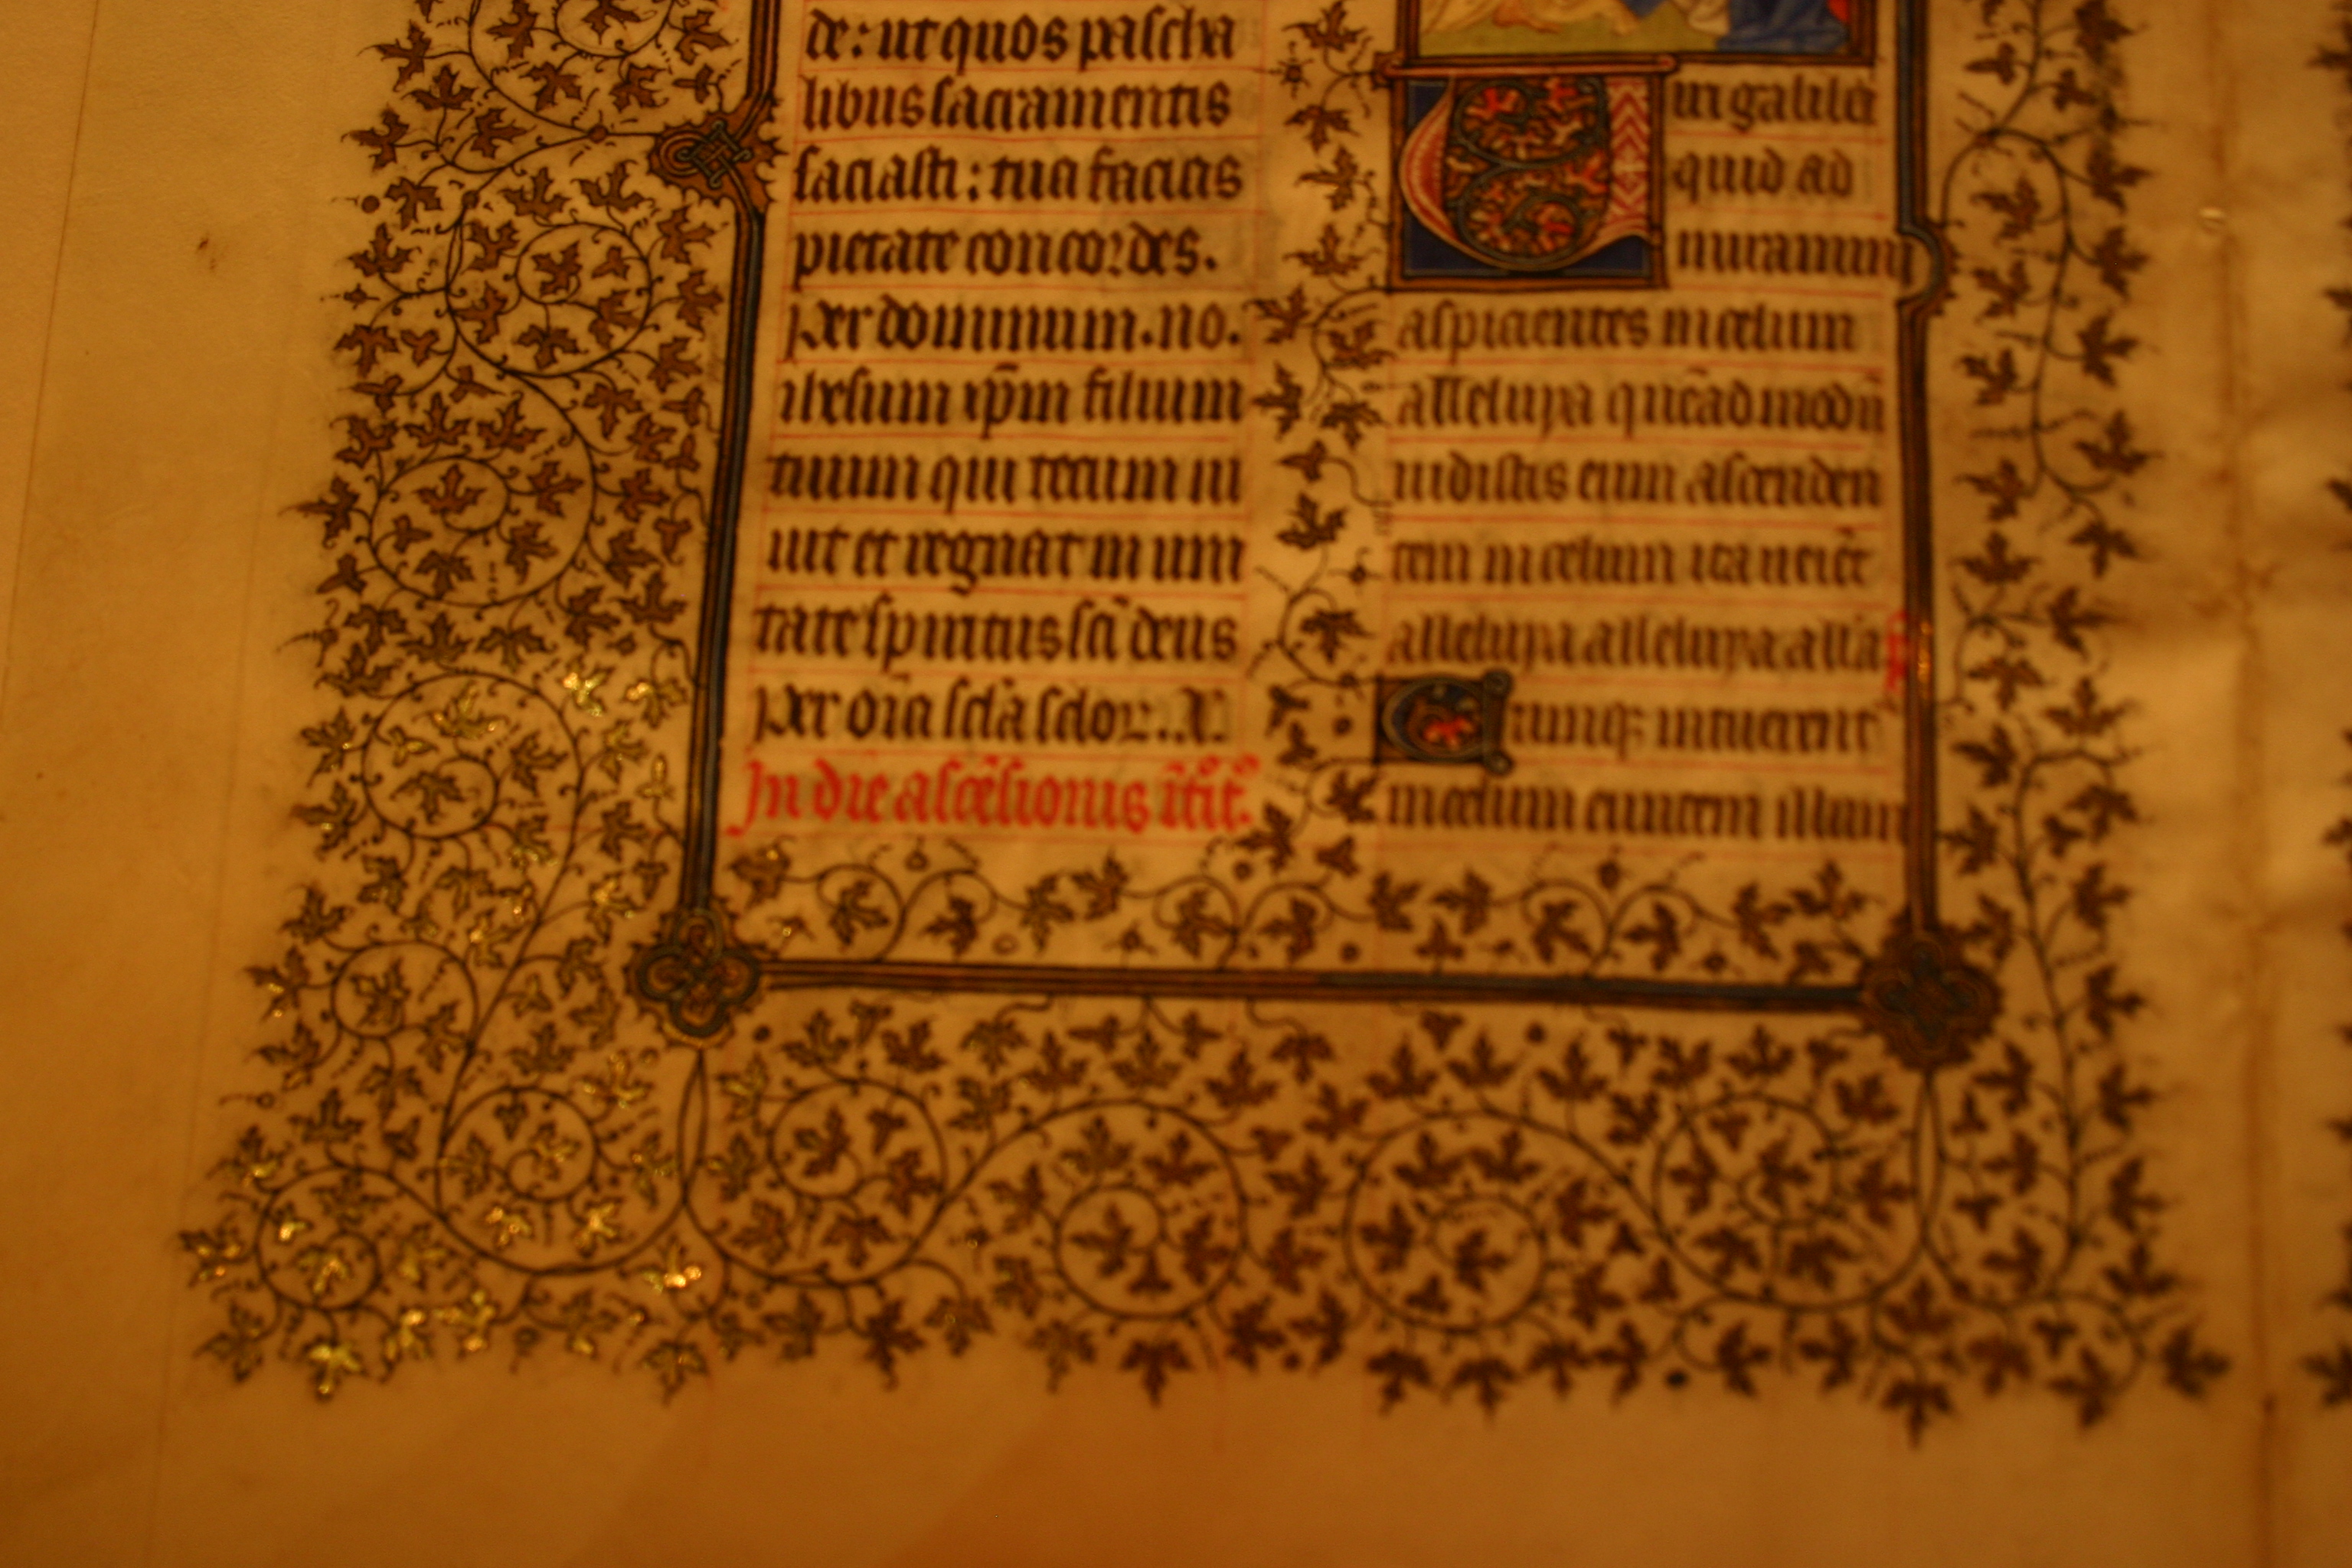 de: ut quos pascha
libus sacramentis
saciasti: tua facias
pietate concordes.
Per dominum. no.
ihesum xp̄m filium
tuum qui tecum ui
uit et regnat in uni
tate spiritus sc̄i deus
Per oīa scl̄a sclor. A
In die ascēsionis
Uiri galilei
quid ad
miramini
aspicientes in celum
alleluya quēadmodū
uidistis eum ascenden
tem in celum ita ueiet
alleluya alleluya all̄a
Cunq; intuerent
in celum euntem illum